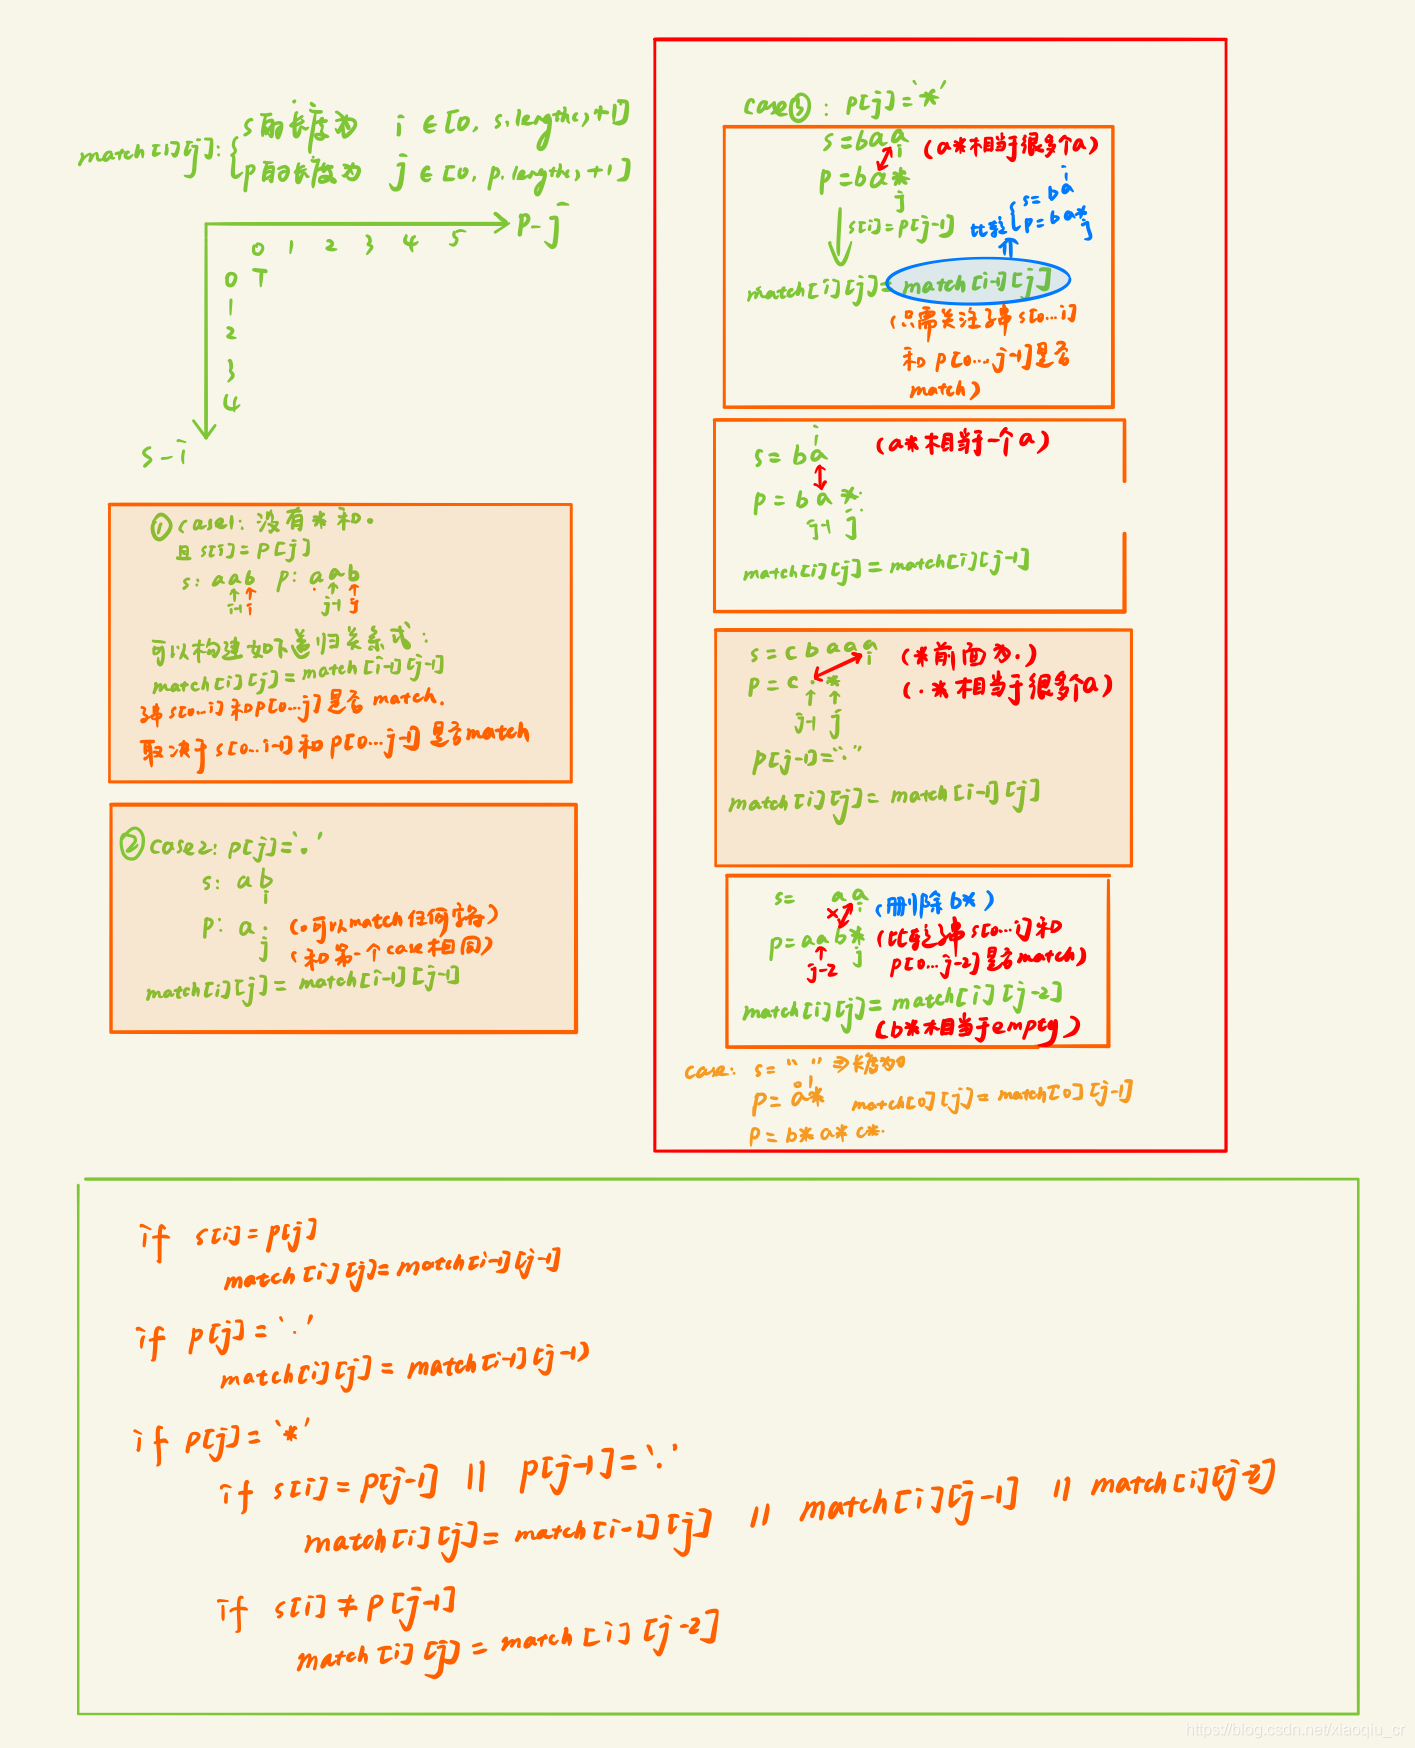 match[i][j]:
s的长度为 i ∈ [0, s.length()+1]
p的长度为 j ∈ [0, p.length()+1]
p-j
0 1 2 3 4 5
0 T
1
2
3
4
s-i
① case1: 没有*和.
且 s[i]=p[j]
s: aab p: aab
i-1 i j-1 j
可以构建如下递归关系式:
match[i][j]=match[i-1][j-1]
s[0...i]和p[0...j]是否match.
取决于s[0...i-1]和p[0...j-1]是否match
② case2: p[j]='.'
s: ab
i
p: a. (.可以match任何字符)
j (和第一个case相同)
match[i][j]=match[i-1][j-1]
case③: p[j]='*'
s=baa (a*相当于很多个a)
i
p=ba*
j
s[i]=p[j-1]
比较
i
s=ba
p=ba*
j
match[i][j]=match[i-1][j]
(只需关注子串s[0...i]
和p[0...j-1]是否
match)
i
s=ba (a*相当于一个a)
p=ba*
j-1 j
match[i][j]=match[i][j-1]
s=cbaaa (*前面为.)
i
p=c.* (.*相当于很多个a)
j-1 j
p[j-1]="."
match[i][j]=match[i-1][j]
s= aa (删除b*)
i
p=aab* (比较子串s[0...i]和
j-2 j p[0...j-2]是否match)
match[i][j]=match[i][j-2]
(b*相当于empty)
case: s="" ⇒长度为0
0 1
p=a* match[0][j]=match[0][j-1]
p=b*a*c*
if s[i]=p[j]
match[i][j]=match[i-1][j-1]
if p[j]='.'
match[i][j]=match[i-1][j-1)
if p[j]='*'
if s[i]=p[j-1] || p[j-1]='.'
match[i][j]=match[i-1][j] || match[i][j-1] || match[i][j-2]
if s[i]≠p[j-1]
match[i][j]=match[i][j-2]
https://blog.csdn.net/xiaoqiu_cr